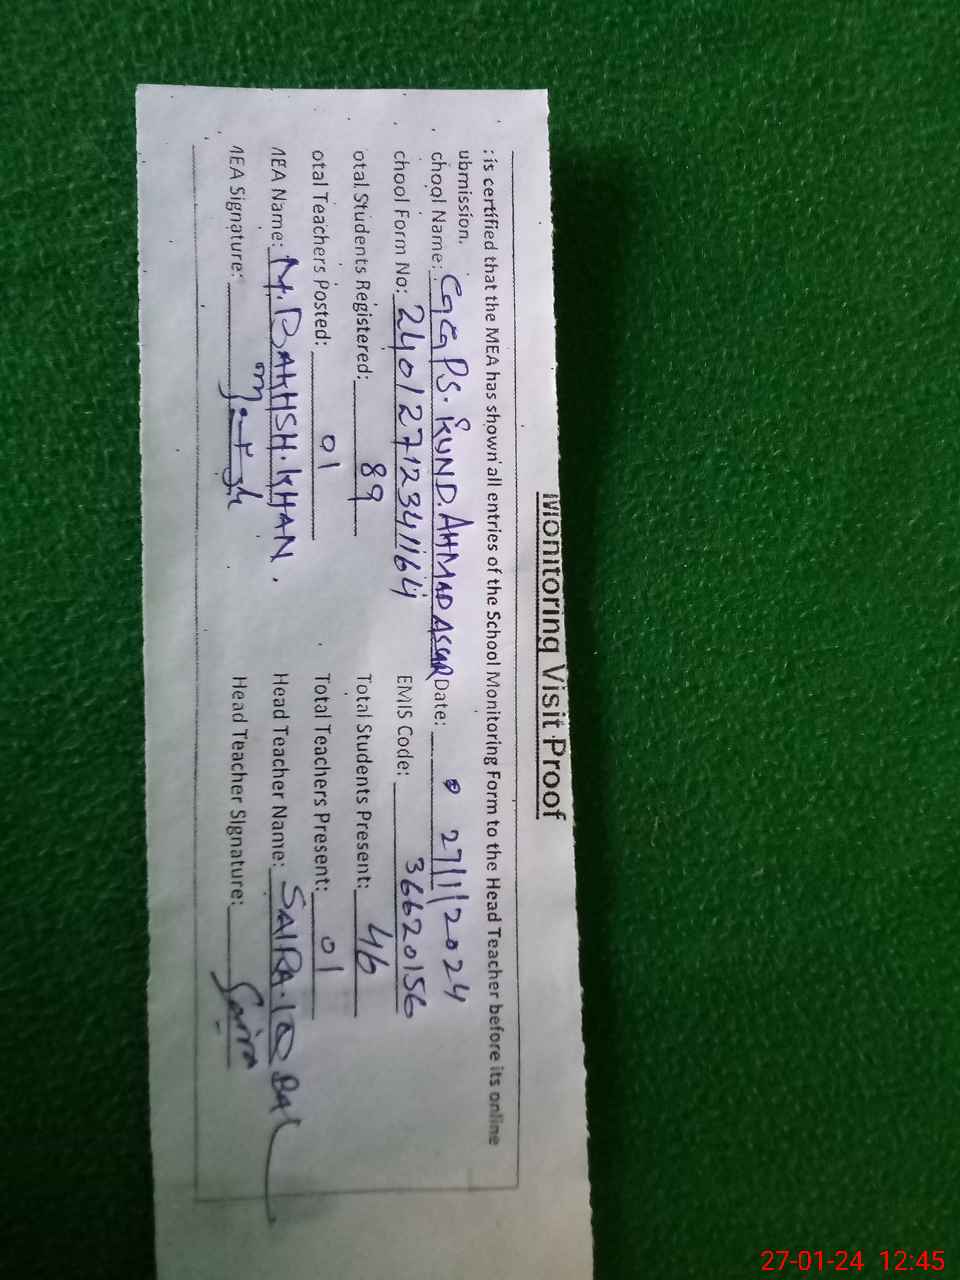 Monitoring Visit Proof
is certified that the MEA has shown all entries of the School Monitoring Form to the Head Teacher before its online
ubmission.
chool Name: GGPS. KUND. AHMAD ASGAR Date: 27/1/2024
chool Form No: 24012712341164 EMIS Code: 36620156
otal Students Registered: 89 Total Students Present: 46
otal Teachers Posted: 01 Total Teachers Present: 01
MEA Name: M. BAKHSH. KHAN. Head Teacher Name: SAIRA. IQBAL
MEA Signature: Head Teacher Signature: Saira
27-01-24 12:45